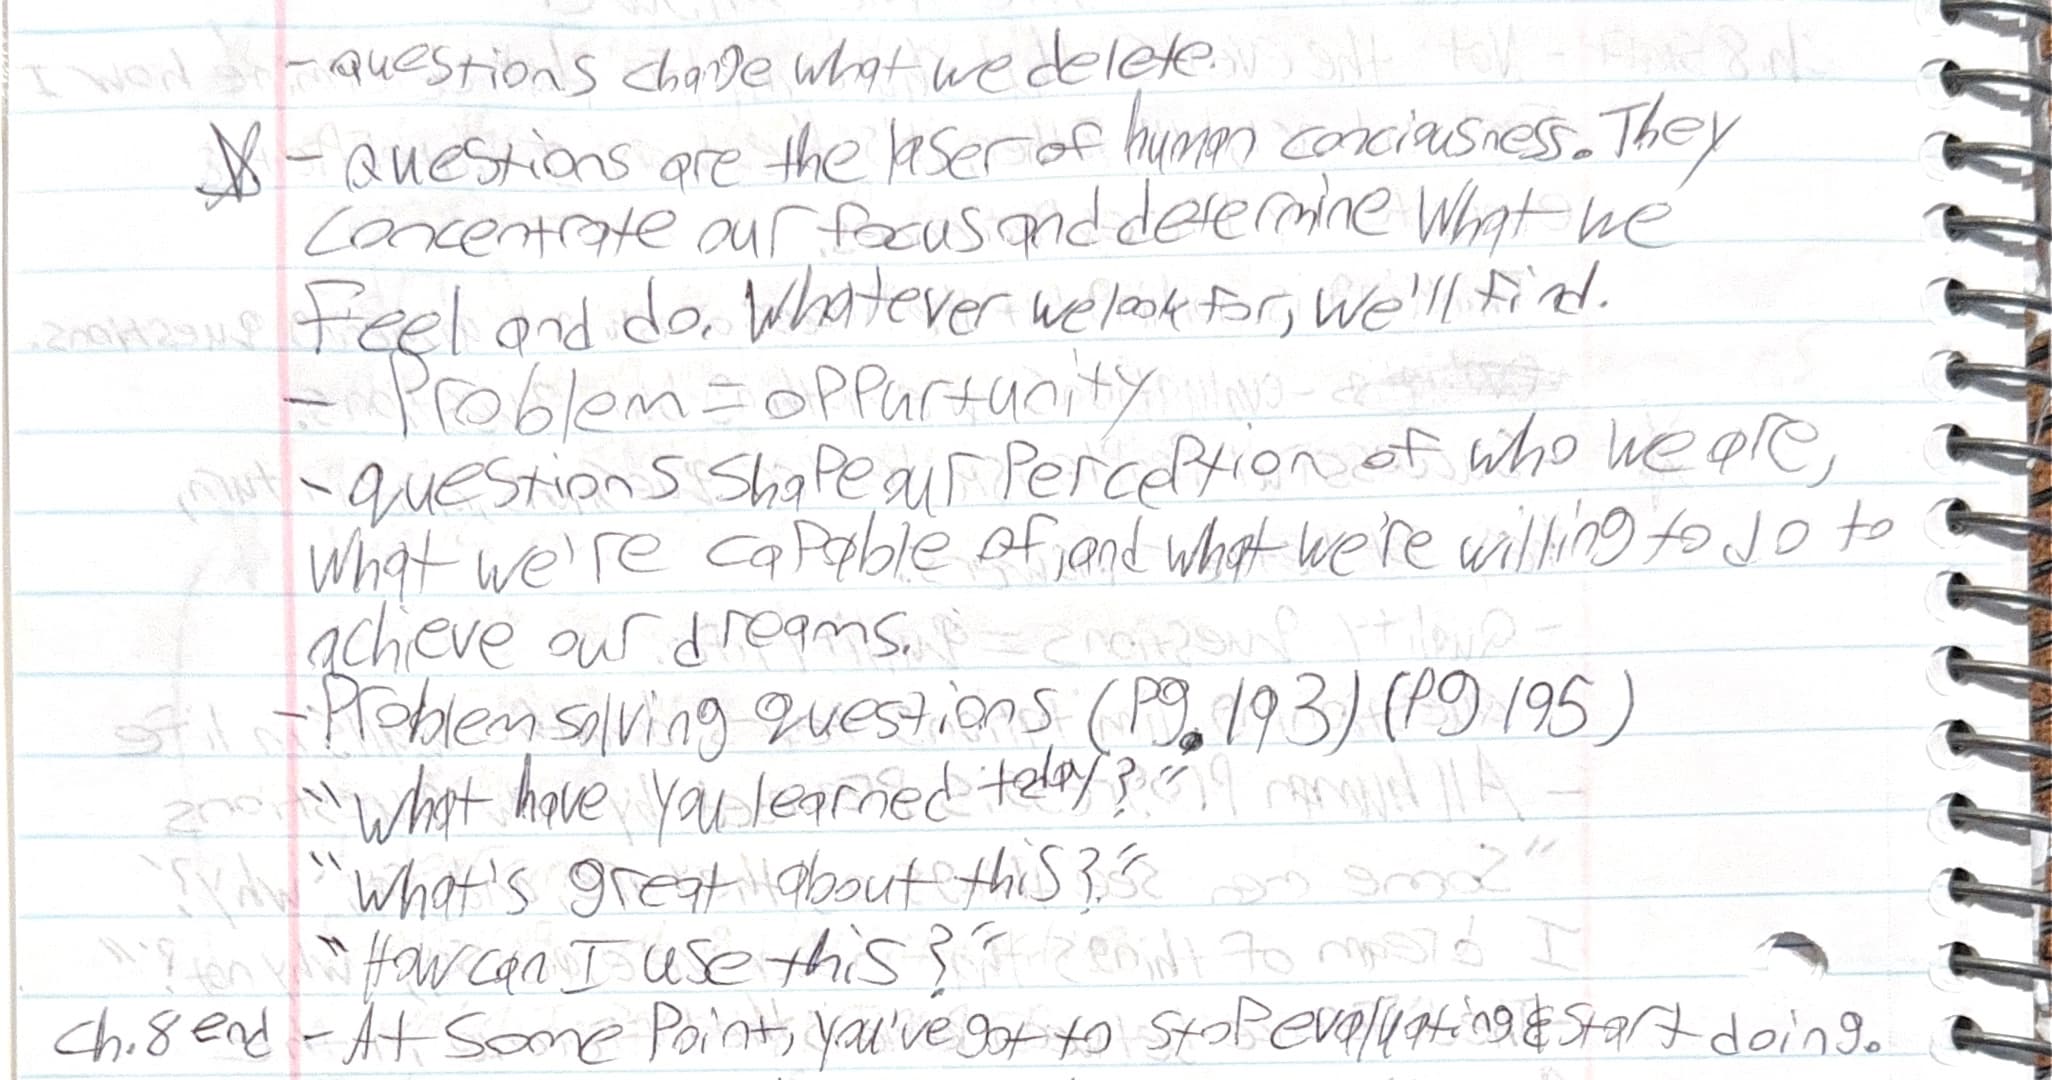 - questions change what we delete.
☆ - questions are the laser of human conciousness. They
concentrate our focus and determine what we
feel and do. Whatever we look for, we'll find.
- Problem = oppurtunity
- questions shape our perception of who we are,
what we're capable of, and what we're willing to do to
achieve our dreams.
- Problem solving questions (Pg. 193) (Pg 195)
"What have you learned today?"
"What's great about this?"
"How can I use this?"
Ch. 8 end - At some point, you've got to stop evaluating & start doing.